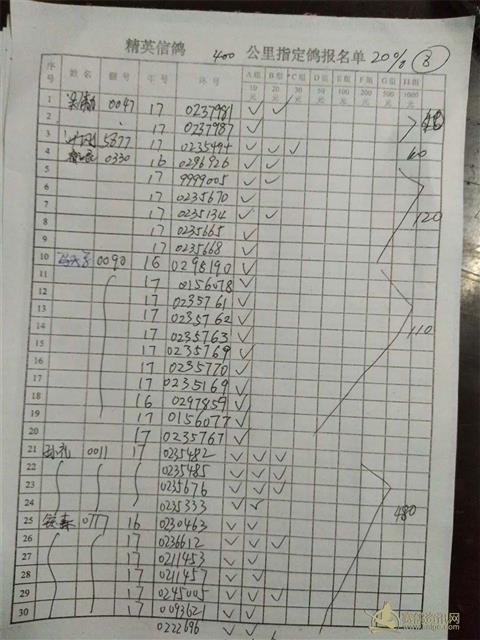 精英信鸽 400 公里指定鸽报名单 20% B
序号 姓名 棚号 年号 环号 A组10元 B组20元 C组30元 D组50元 E组100元 F组200元 G组500元 H组1000元
1 0047 17 0237981 ✓ ✓
2 17 0237987 ✓ ✓
3 5877 17 0235494 ✓ ✓ ✓ 60
4 0330 16 0296926 ✓ ✓
5 17 9999005 ✓ ✓
6 17 0235670 ✓
7 17 0235134 ✓ ✓ 120
8 17 0235665 ✓
9 17 0235668 ✓
10 0090 16 0298190 ✓
11 17 0156078 ✓
12 17 0235761 ✓
13 17 0235762 ✓ 110
14 17 0235763 ✓
15 17 0235769 ✓
16 17 0235770 ✓
17 17 0235169 ✓
18 16 0297859 ✓
19 17 0156077 ✓
20 17 0235767 ✓
21 孙礼 0011 17 0235482 ✓ ✓ ✓
22 0235485 ✓ ✓ ✓
23 0235676 ✓ ✓ ✓
24 0235333 ✓ ✓
25 16 0230463 ✓ ✓ 480
26 17 0236612 ✓ ✓ ✓
27 17 0211453 ✓ ✓
28 17 0211457 ✓ ✓
29 17 0245005 ✓ ✓ ✓
30 17 ✓ ✓
0222696 ✓ ✓